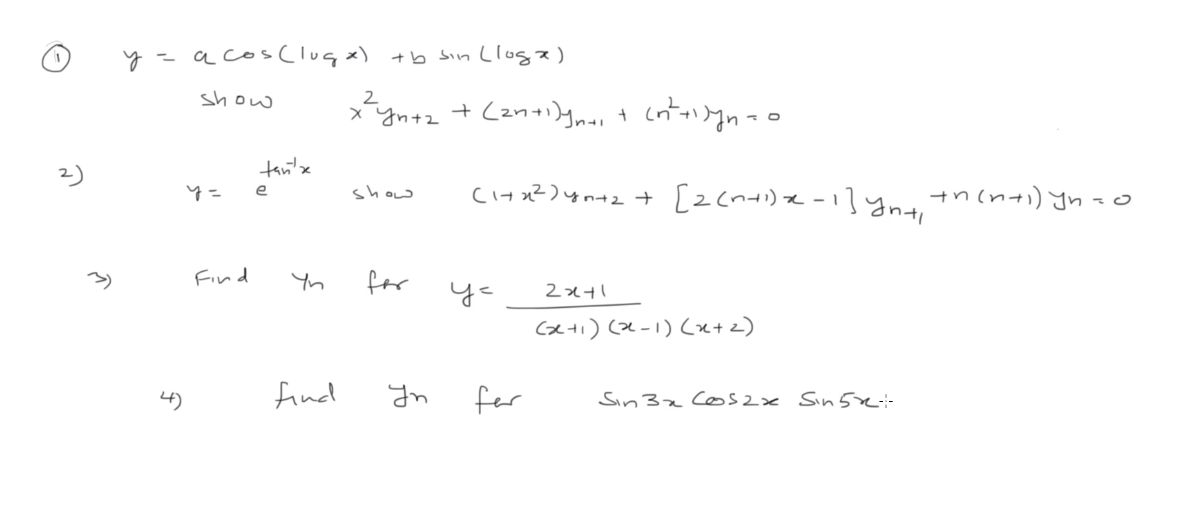 ① y = a cos(log x) + b sin(log x)
show x²yₙ₊₂ + (2n+1)yₙ₊₁ + (n²+1)yₙ = 0
2) y = e^(tan⁻¹x) show (1+x²)yₙ₊₂ + [2(n+1)x - 1]yₙ₊₁ + n(n+1)yₙ = 0
3) Find yₙ for y = (2x+1) / ((x+1)(x-1)(x+2))
4) find yₙ for sin3x cos2x sin5x